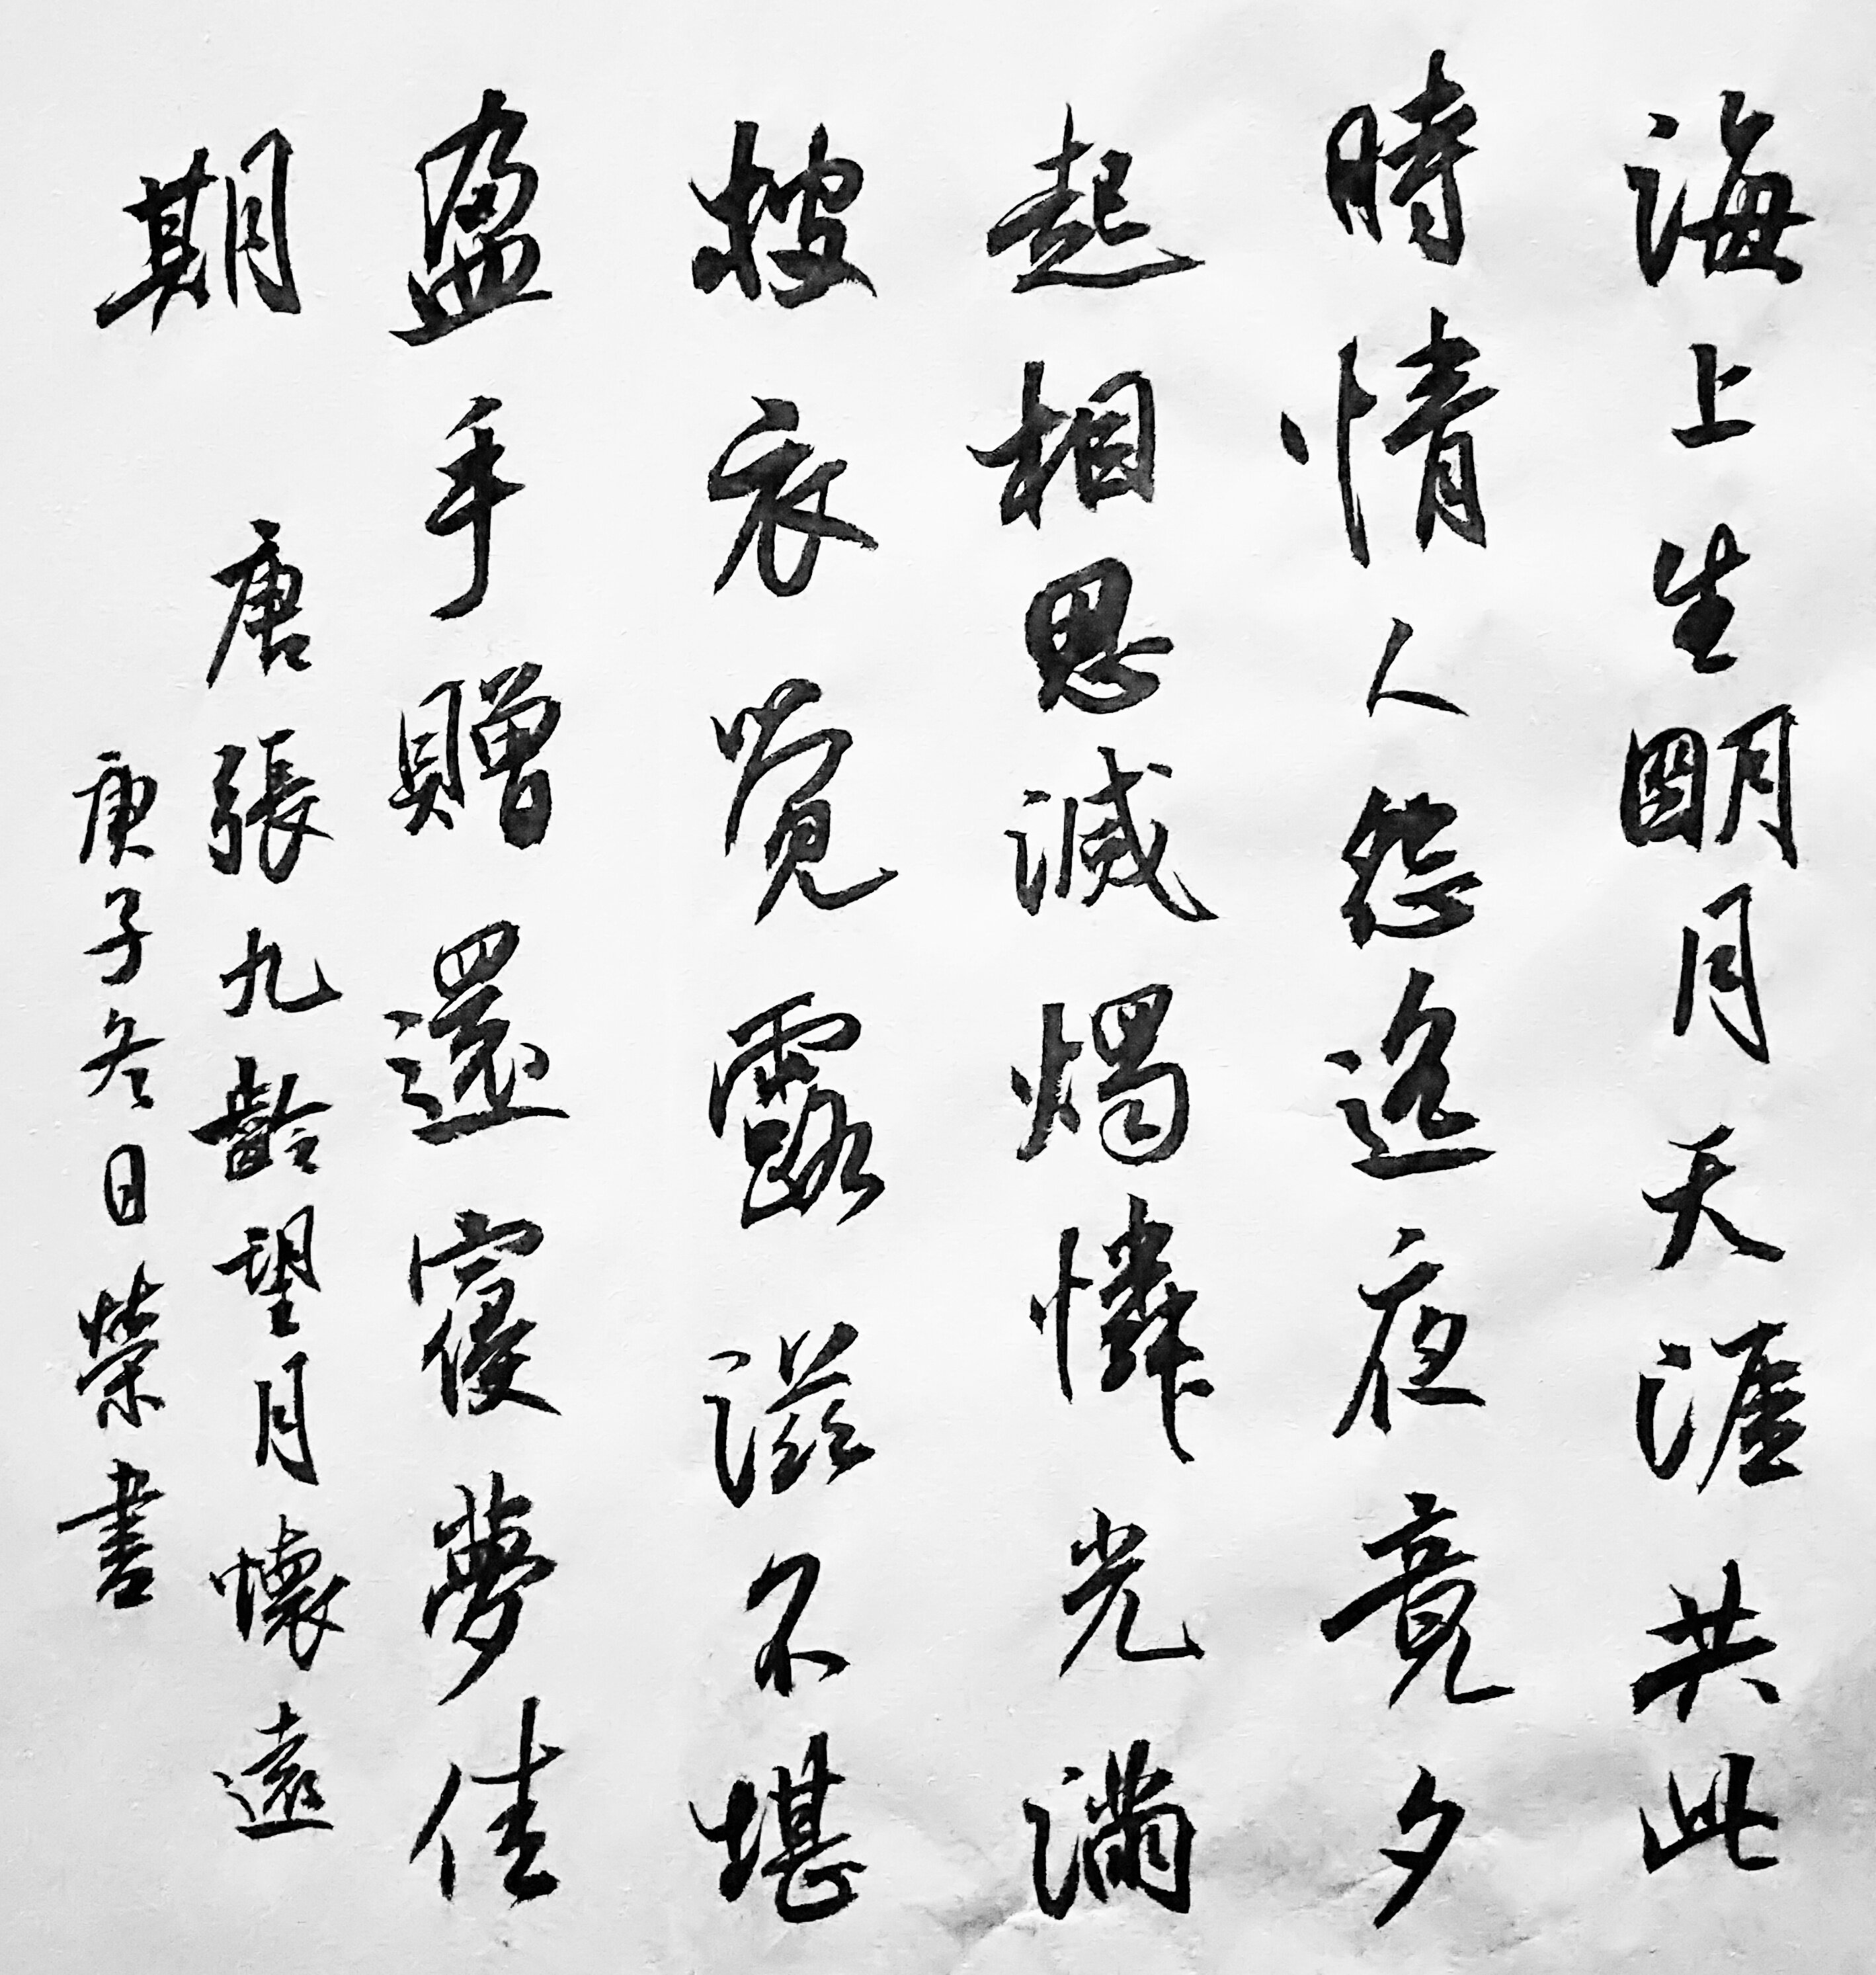 海上生明月天涯共此
時情人怨遙夜竟夕
起相思滅燭憐光滿
披衣覺露滋不堪
盈手贈還寢夢佳
期
唐張九齡望月懷遠
庚子冬日榮書